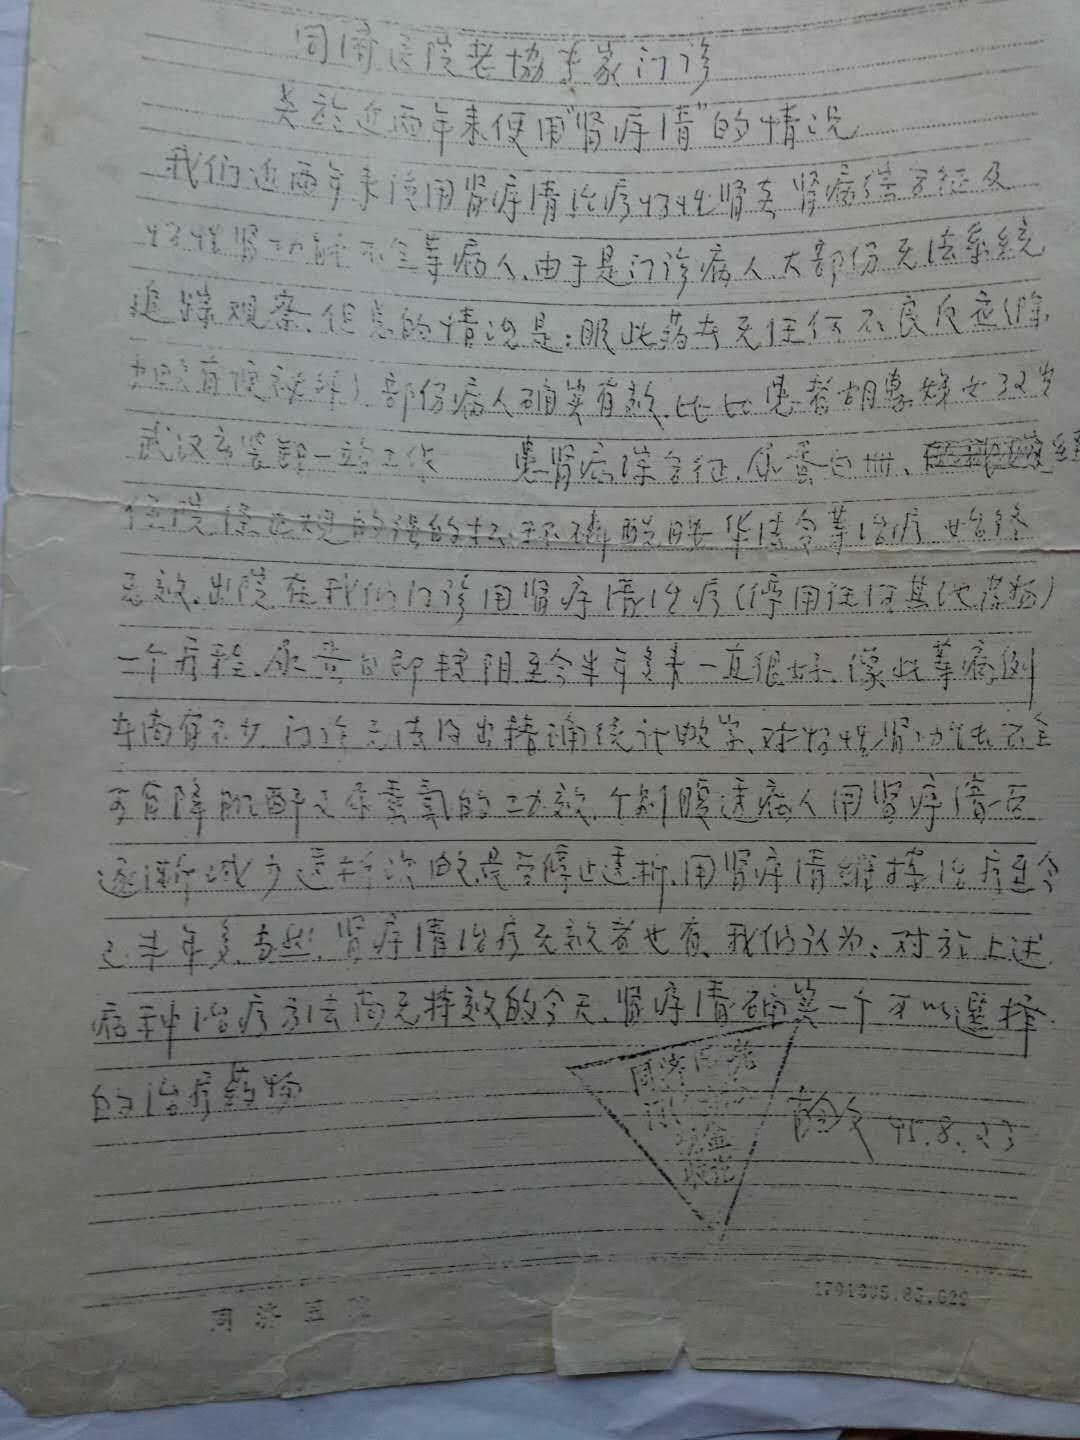 同济医院老协专家门诊
关于近两年来使用“肾疗清”的情况
我们近两年来使用肾疗清治疗慢性肾炎肾病综合征及
慢性肾功能不全等病人.由于是门诊病人大部份无法系统
追踪观察.但总的情况是:服此药在无任何不良反应(除
有便秘外).部份病人确实有效.比如患者胡惠娣女32岁
武汉市装卸一站工作 患肾病综合征.尿蛋白卌、经
住院经正规的强的松、环磷酰胺华法令等治疗始终
无效.出院在我们门诊用肾疗清治疗(停用任何其他药物)
一个疗程.尿蛋白即转阴至今半年多来一直很好.像此等病例
尚有不少.门诊无法得出精确统计数字.对慢性肾功能不全
可有降肌酐之尿素氮的功效.个别透病人用肾疗清后
逐渐减少透析次数最后停止透析.用肾疗清维持治疗至今
已半年多.当然.肾疗清治疗无效者也有.我们认为:对于上述
病种治疗方法尚无特效的今天.肾疗清确实一个可以选择
的治疗药物
同济医院
现金
收讫
95.8.23
同济医院